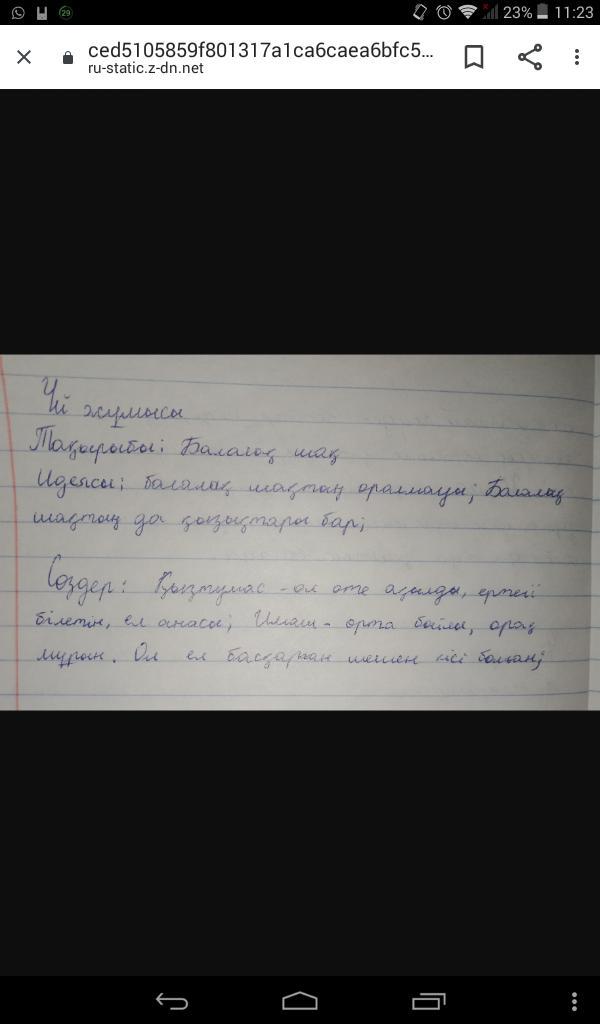 29
23%
11:23
ced5105859f801317a1ca6caea6bfc5...
ru-static.z-dn.net
Үй жұмысы
Тақырыбы: Балалық шақ
Идеясы: балалық шақтың оралмауы; Балалық
шақтың да қызықтары бар;
Сөздер: Қызтумас - ол өте ақылды, ертегі
білетін, ел анасы; Имаш - орта бойлы, орақ
мұрын. Ол ел басқарған шешен кісі болған;